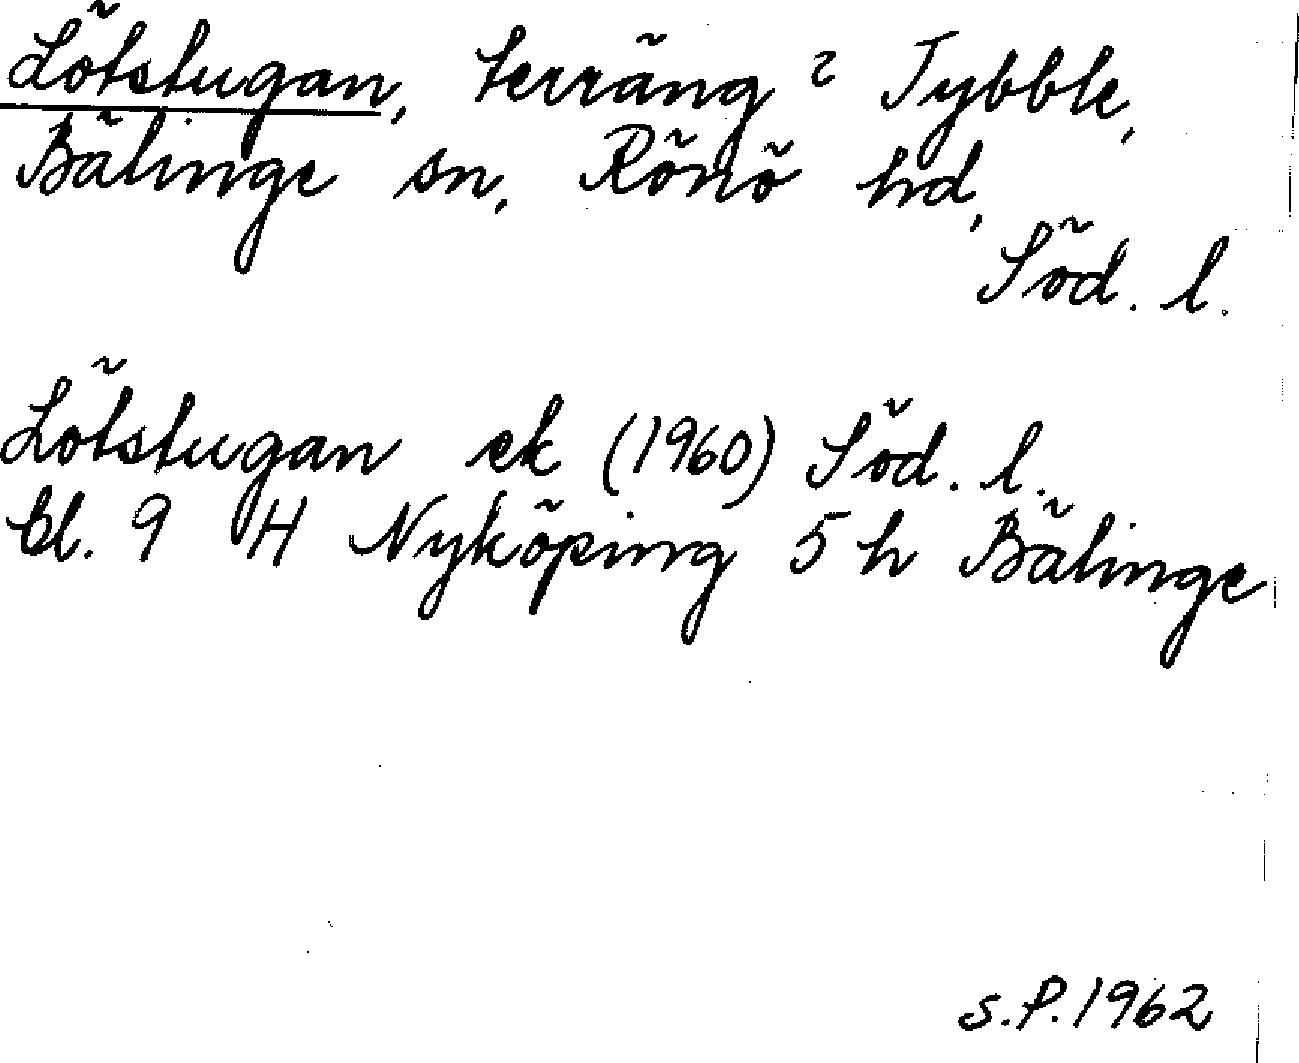 Lötstugan, terräng? Tybble,
Bälinge sn, Rönö hd,
Söd. l.
Lötstugan ek (1960) Söd. l.
bl. 9 H Nyköping 5 h Bälinge
S.P. 1962